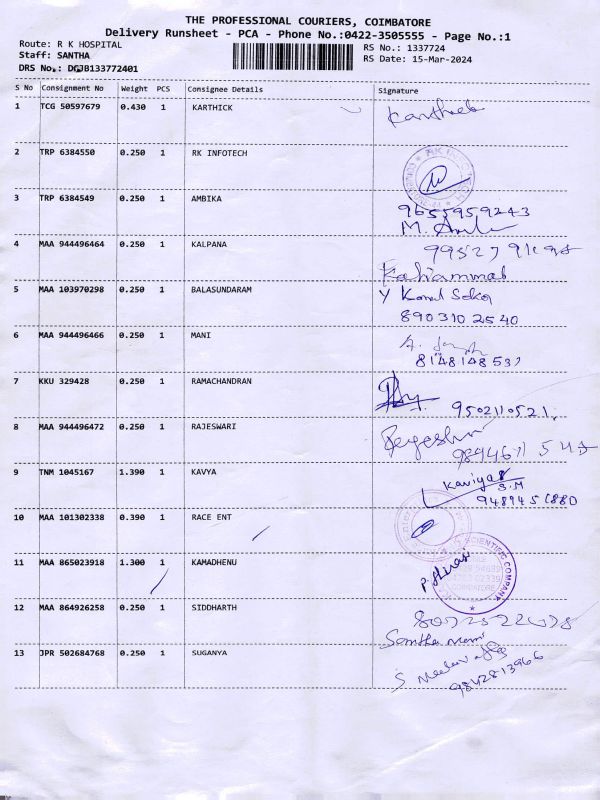 THE PROFESSIONAL COURIERS, COIMBATORE
Delivery Runsheet - PCA - Phone No.:0422-3505555 - Page No.:1
Route: R K HOSPITAL
Staff: SANTHA
DRS No.: DGJB133772401
RS No.: 1337724
RS Date: 15-Mar-2024
S No Consignment No Weight PCS Consignee Details Signature
1 TCG 50597679 0.430 1 KARTHICK
Kartheek
2 TRP 6384550 0.250 1 RK INFOTECH
3 TRP 6384549 0.250 1 AMBIKA
9655959243
M.
4 MAA 944496464 0.250 1 KALPANA
Kaliammal
5 MAA 103970298 0.250 1 BALASUNDARAM
8903102540
6 MAA 944496466 0.250 1 MANI
814814853
7 KKU 329428 0.250 1 RAMACHANDRAN
9502110521
8 MAA 944496472 0.250 1 RAJESWARI
9 TNM 1045167 1.390 1 KAVYA
Kaviya
S.M
10 MAA 101302338 0.390 1 RACE ENT
SCIENTIFIC COMPANY
COIMBATORE
11 MAA 865023918 1.300 1 KAMADHENU
12 MAA 864926258 0.250 1 SIDDHARTH
13 JPR 502684768 0.250 1 SUGANYA
9842813966